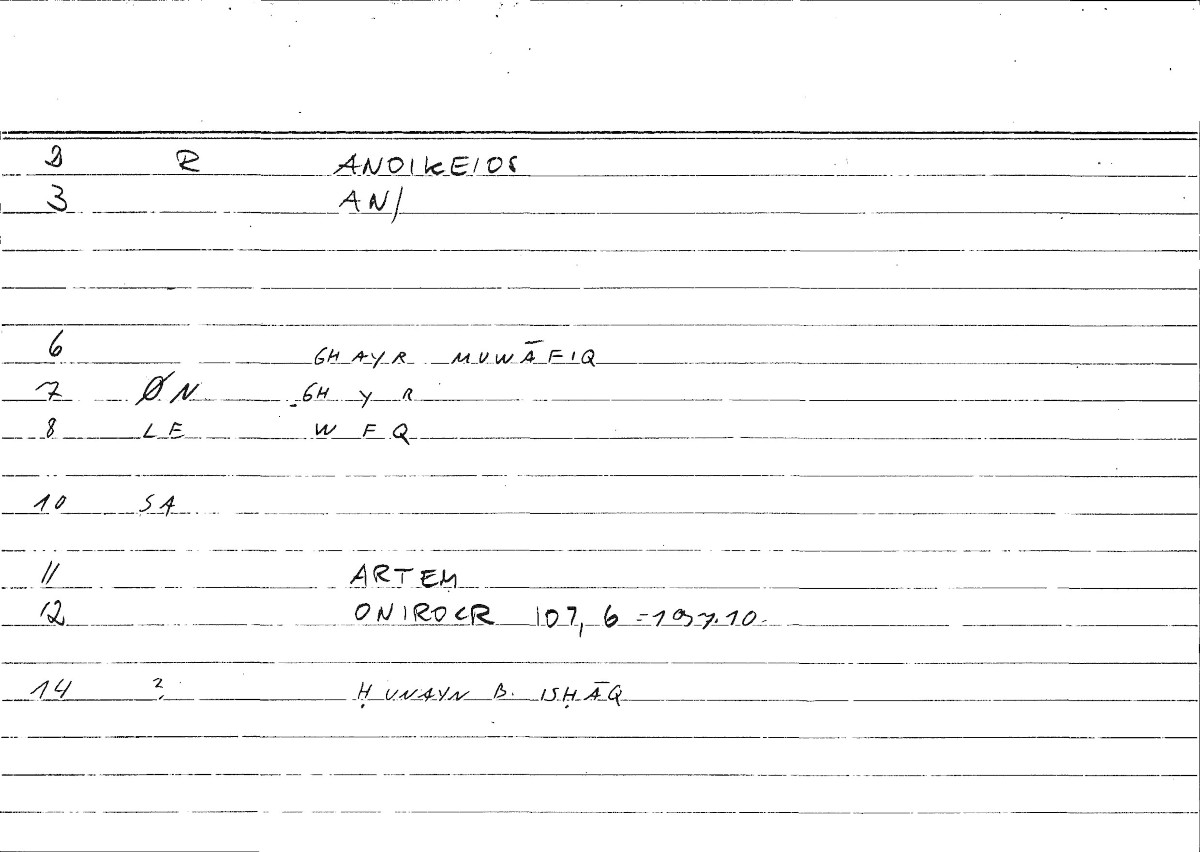 2 R ANOIKEIOS
3 AN/
6 GHAYR MUWĀFIQ
7 ØN GH Y R
8 LE W F Q
10 SA
11 ARTEM
12 ONIROCR 107, 6 =197.10.
14 ? ḤUNAYN B. ISḤĀQ